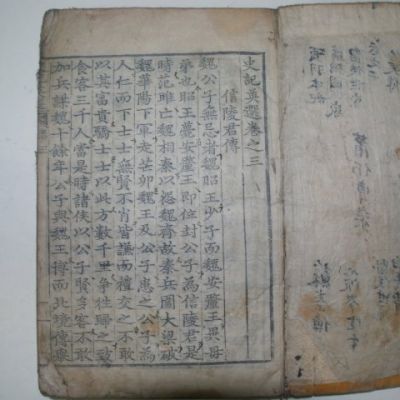 史記英選卷之三
信陵君傳
魏公子無忌者魏昭王少子而魏安釐王異母
弟也昭王薨安釐王即位封公子爲信陵君是
時范雎亡魏相秦以怨魏齊故秦兵圍大梁破
魏華陽下軍走芒卯魏王及公子患之公子爲
人仁而下士士無賢不肖皆謙而禮交之不敢
以其富貴驕士士以此方數千里爭往歸之致
食客三千人當是時諸侯以公子賢多客不敢
加兵謀魏十餘年公子與魏王博而北境傳擧